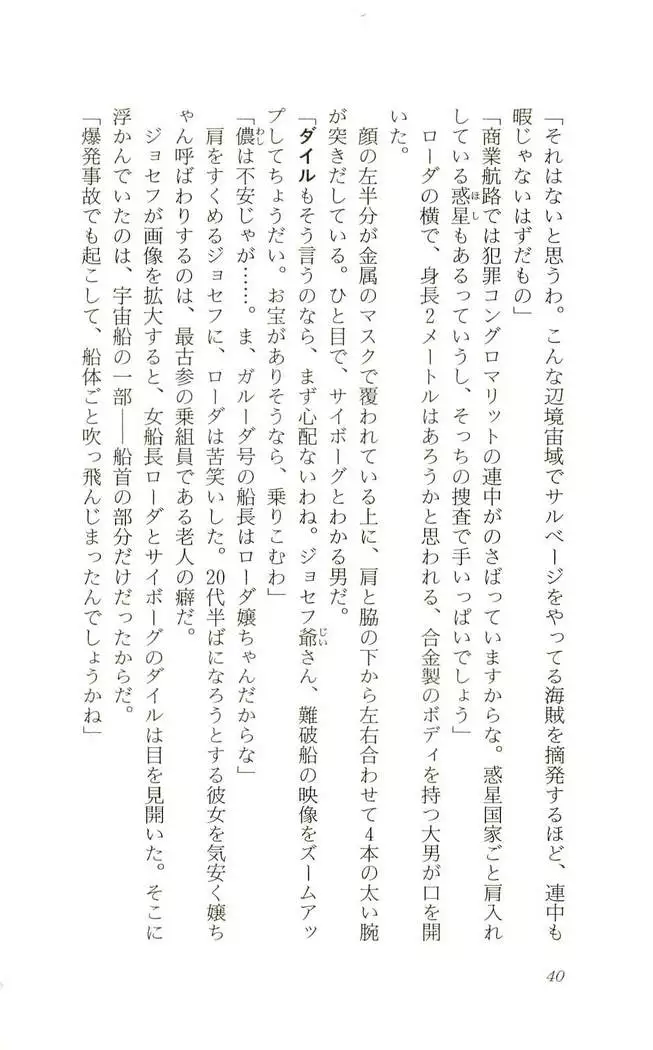 「それはないと思うわ。こんな辺境宙域でサルベージをやってる海賊を摘発するほど、連中も
暇じゃないはずだもの」
「商業航路では犯罪コングロマリットの連中がのさばっていますからな。惑星国家ごと肩入れ
している惑星もあるっていうし、そっちの捜査で手いっぱいでしょう」
ほし
　ローダの横で、身長２メートルはあろうかと思われる、合金製のボディを持つ大男が口を開
いた。
　顔の左半分が金属のマスクで覆われている上に、肩と脇の下から左右合わせて４本の太い腕
が突きだしている。ひと目で、サイボーグとわかる男だ。
「ダイルもそう言うのなら、まず心配ないわね。ジョセフ爺さん、難破船の映像をズームアッ
じい
プしてちょうだい。お宝がありそうなら、乗りこむわ」
「儂は不安じゃが……。ま、ガルーダ号の船長はローダ嬢ちゃんだからな」
わし
　肩をすくめるジョセフに、ローダは苦笑いした。20代半ばになろうとする彼女を気安く嬢ち
ゃん呼ばわりするのは、最古参の乗組員である老人の癖だ。
　ジョセフが画像を拡大すると、女船長ローダとサイボーグのダイルは目を見開いた。そこに
浮かんでいたのは、宇宙船の一部――船首の部分だけだったからだ。
「爆発事故でも起こして、船体ごと吹っ飛んじまったんでしょうかね」
40